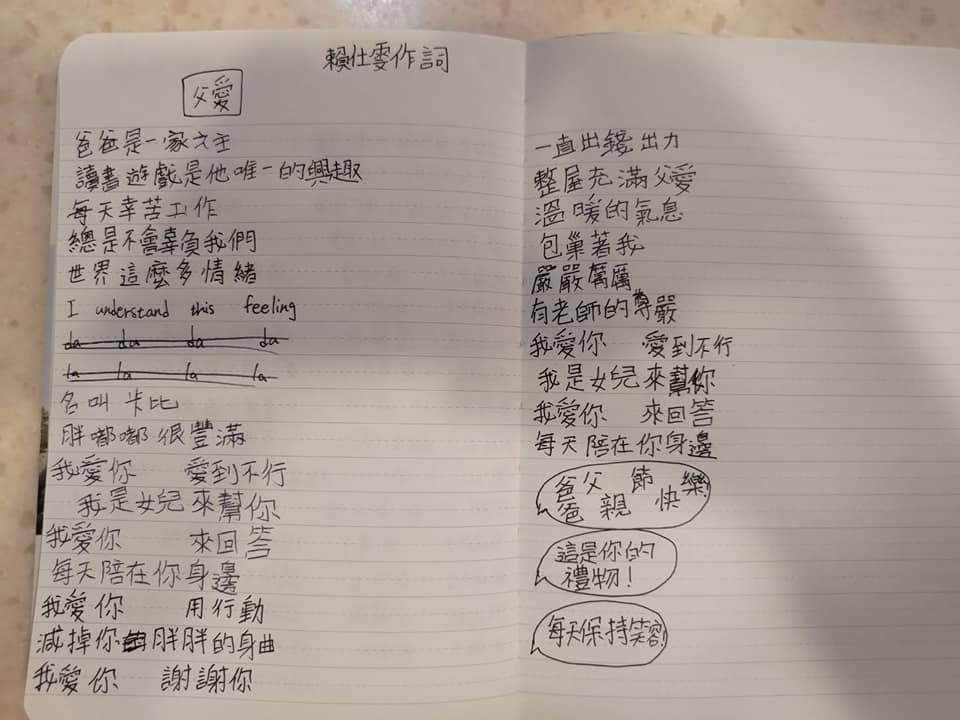 賴仕雯作詞
父愛
爸爸是一家之主
讀書遊戲是他唯一的興趣
每天辛苦工作
總是不會辜負我們
世界這麼多情緒
I understand this feeling
da da da da
la la la la
名叫卡比
胖嘟嘟很豐滿
我愛你 愛到不行
我是女兒來幫你
我愛你 來回答
每天陪在你身邊
我愛你 用行動
減掉你胖胖的身曲
我愛你 謝謝你
一直出錢出力
整屋充滿父愛
溫暖的氣息
包巢著我
嚴嚴厲厲
有老師的尊嚴
我愛你 愛到不行
我是女兒來幫你
我愛你 來回答
每天陪在你身邊
爸爸父親節快樂!
這是你的
禮物!
每天保持笑容!